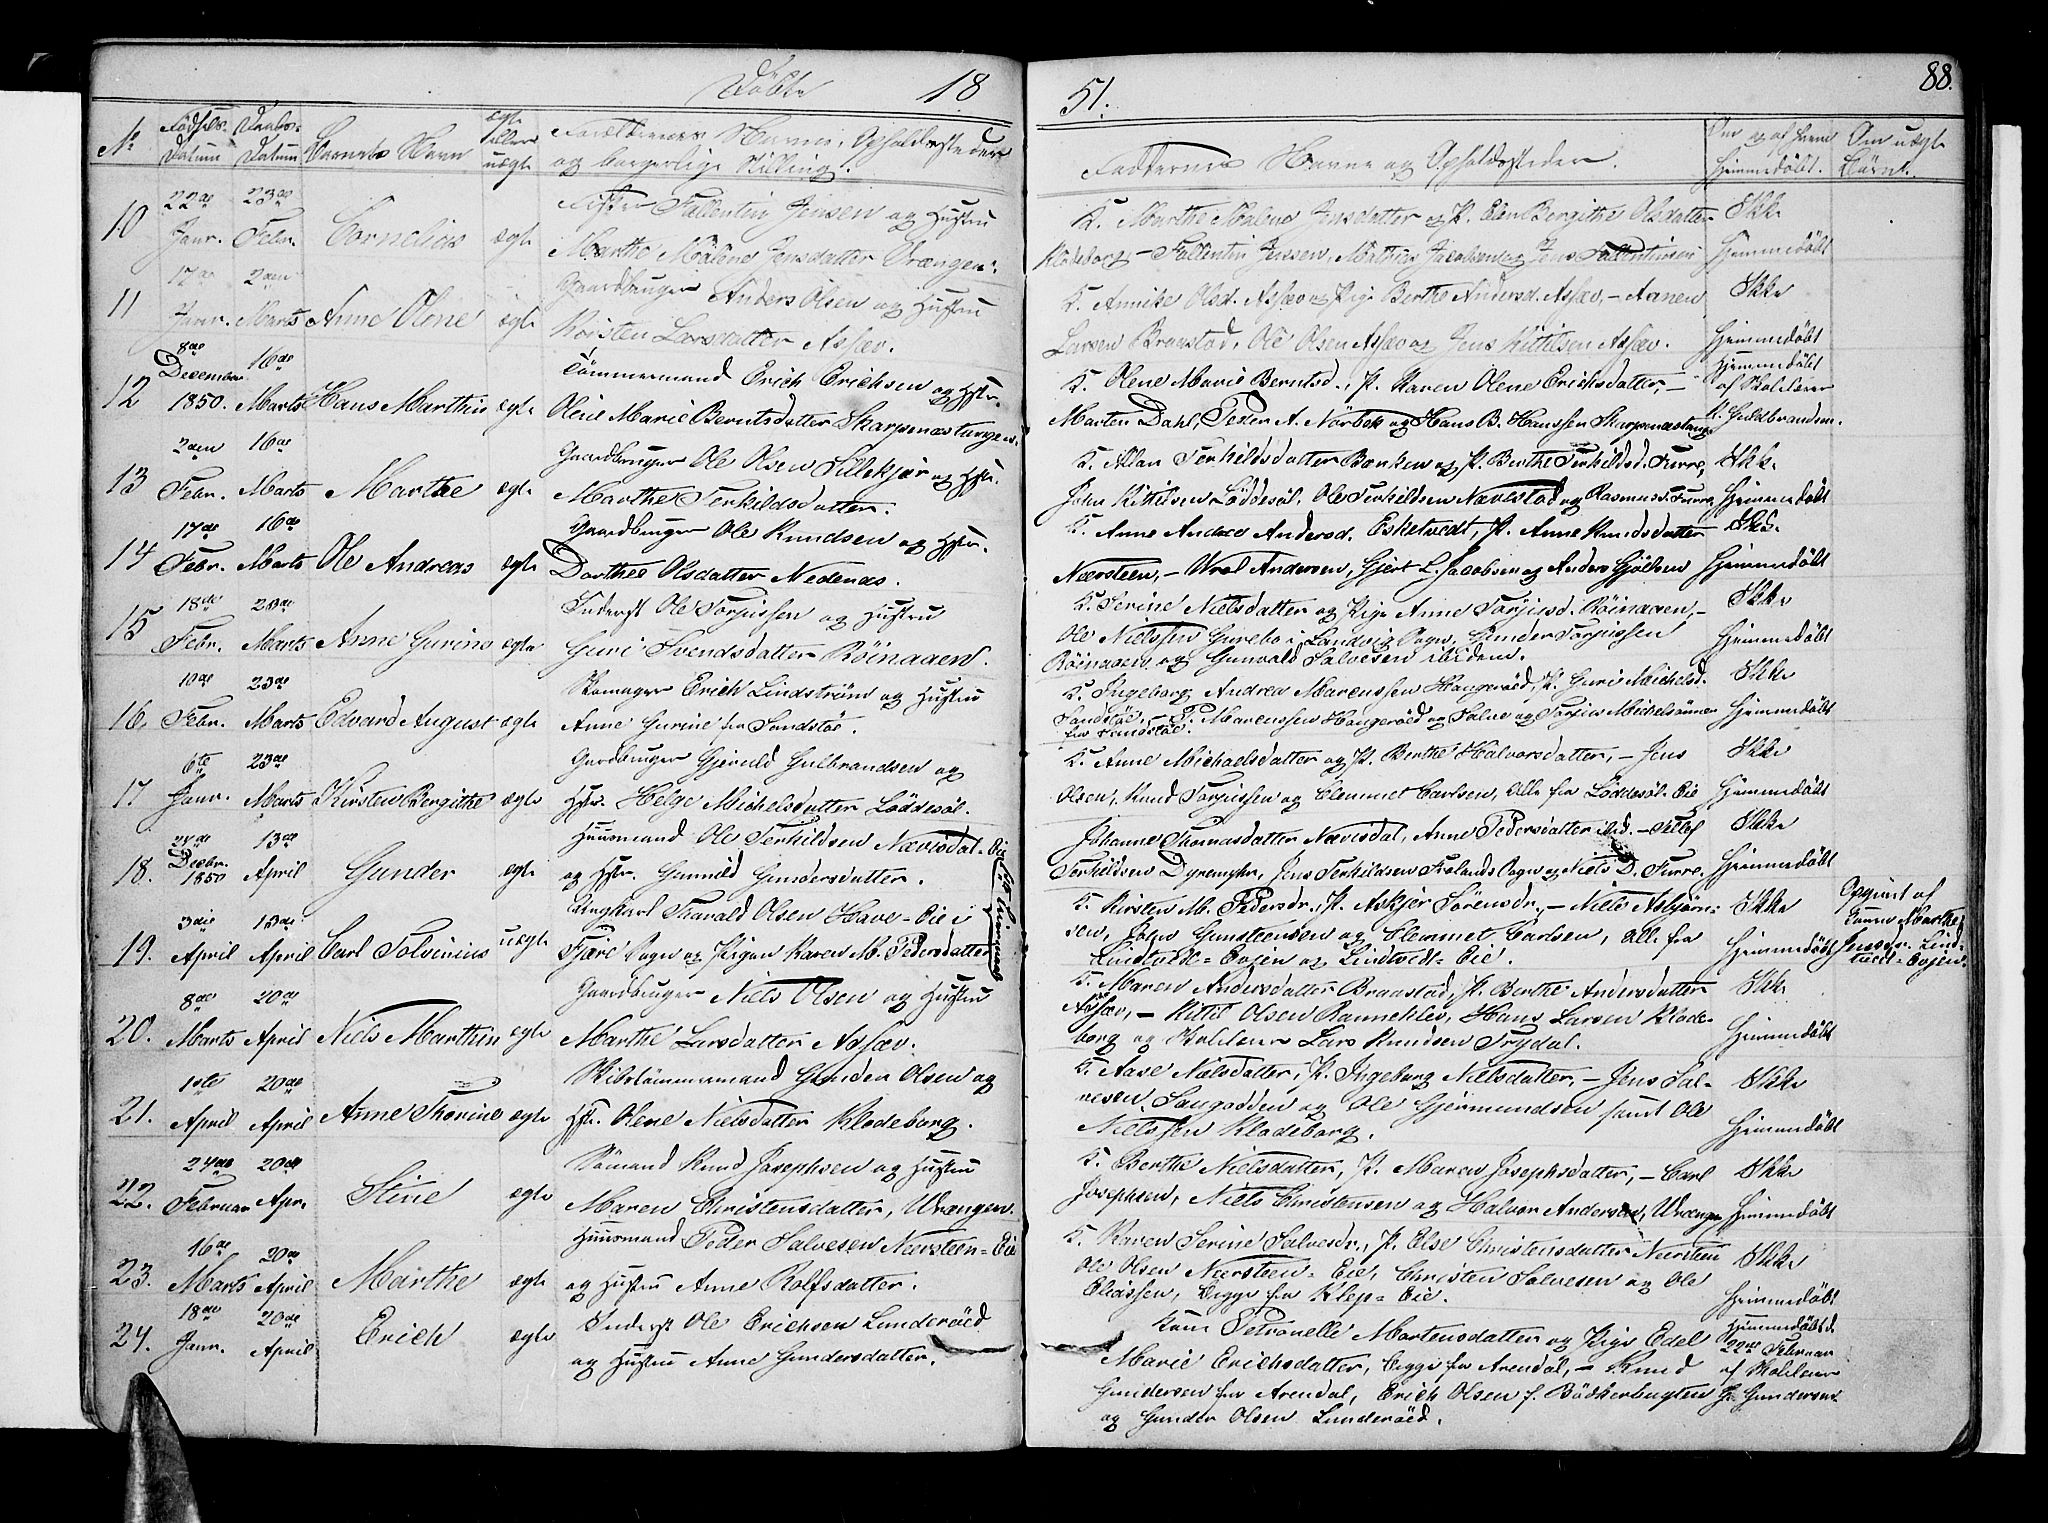 Döbte 18
51.
88.
No
Fødsels-
Datum
Daabs-
Datum
Barnets Navn
ægte
eller
uægte
Forældrenes Navne, Opholdssteder
og borgerlige Stilling.
Faddernes Navne og Opholdssteder.
Om og af hvem
Hjemmedöbt.
Om uægte
Börn.
10
22de
Janr.
23de
Febr.
Cornelius
ægte
Fisker Fallentin Jensen og Hustru
Marthe Malene Jensdatter Vrængen.
K. Marthe Malene Jensdatter og P. Elen Bergithe Olsdatter
Klodeborg – Fallentin Jenssen, Mathias Jacobsen og Jens Fallentinsen
Ikke
Hjemmedöbt
11
17de
Janr.
2den
Marts
Anne Olene
ægte
Gaardbruger Anders Olsen og Hustru
Kirsten Larsdatter Assæv.
K. Annike Olsd. Assæv og Pige Berthe Andersd. Assæv, –
Larsen Braastad, Ole Olsen Assæv og Jens Kittilsen Assæv.
Ikke
Hjemmedöbt
12
8de
December
1850.
16de
Marts
Hans Marthin
ægte
Tömmermand Erich Erichsen og Hstr.
Olene Marie Berntsdatter Skarpnæstangen.
K. Olene Marie Berntsd., P. Karen Olene Erichsdatter, –
Morten Dahl, Peder A. Nörbek og Hans B. Hanssen Skarpenæstang
Hjemmedöbt
af Skolelærer
H. Huldbrandsen.
13
2den
Febr.
16de
Marts
Marthe
ægte
Gaardbruger Ole Olsen Lillekjær og Hstr.
Marthe Terkildsdatter.
K. Terkildsdatter Bænken og P. Berthe Terkildsd. Furre,
John Kittilsen Löddesöl, Ole Terkildsen Nævestad og Rasmus Furre,
Ikke
Hjemmedöbt
14
17de
Febr.
16de
Marts
Ole Andreas
ægte
Gaardbruger Ole Knudsen og Hstr.
Dorthea Olsdatter Nedenæs.
K. Anne Andrea Andersd. Esketvedt, P. Anne Knudsdatter
Nærsteen, – Wral Andersen, Gjert L. Jacobsen og Anders Gjölsen
Ikke
Hjemmedöbt
15
18de
Febr.
23de
Marts
Anne Gurine
ægte
Inderst Ole Torjussen og Hustru
Guri Svendsdatter Röinaaen.
K. Serine Nielsdatter og Pige Anne Torjusd. Röinaaen, –
Ole Nielssen Gurebo i Landvig Sogn, Gunder Torjussen
Röinaaen og Gunvald Salvesen ibidem.
Ikke
Hjemmedöbt
16.
10de
Febr.
23de
Marts
Edvard August
ægte
Skomager Erich Lindström og Hustru
Anne Gurine fra Sandstöe.
K. Ingeborg Andrea Marcussen Haugeröed, P. Guri Michelsd.
Sandstöe, – P. Marcussen Haugeröed og Salve og Torjus Michelsönner
fra Sandstöe.
Ikke
Hjemmedöbt
17
6te
Janr.
23de
Marts
Kirsten Bergithe
ægte
Gardbruger Gjeruld Gulbrandsen og
Hstr. Helge Michelsdatter Löddesöl.
K. Anne Michaelsdatter og P. Berthe Halvorsdatter, – Jens
Olsen, Knud Torjussen og Clemmet Carlsen, alle fra Löddesöl-Eie
Ikke
Hjemmedöbt
18.
27de
Decbr.
1850
13de
April
Gunder
ægte
Huusmand Ole Terkildsen Nævisdal-Eie
og Hstr. Gunnild Gundersdatter.
Johanne Thomasdatter Nævisdal, Anne Pedersdatter ibid. – Tellef
Terkildsen Dyremyhr, Jens Terkildsen Frolands Sogn og Niels D. Furre.
Ikke
Hjemmedöbt
19.
3die
April
13de
April
Carl Tolvinius
uægte
Ungkarl Thorvald Olsen Have-Eie i
Fjære Sogn og Pigen Karen M. Pedersdatter
K. Kirsten M. Pedersdr., P. Askjer Sörensdr., – Niels Asbjörn-
sen, John Gunsteensen og Clemmet Carlsen, alle fra
Lindtvedt-Eyjen og Lindtvedt-Eie.
Ikke
Hjemmedöbt
Opgivet af
Konen Marthe
Jensdr. Lind-
tvedt-Eyjen
20.
8de
Marts
20de
April
Niels Marthin
ægte
Gaardbruger Niels Olsen og Hustru
Marthe Larsdatter Assæv.
K. Maren Andersdatter Braastad, P. Berthe Andersdatter
Assæv, – Kittil Olsen Rannekley, Hans Larsen Klode-
borg og Skolelærer Lars Knudsen Trydal.
Ikke
Hjemmedöbt
21.
1ste
April
20de
April
Anne Thorine
ægte
Skibstömmermand Gunder Olsen og
Hstr. Olene Nielsdatter Klodeborg.
K. Aase Nielsdatter, P. Ingeborg Nielsdatter, – Jens Sal-
vesen Sangadden og Ole Gjermundsen samt Ole
Nielssen Klodeborg.
Ikke
Hjemmedöbt
22.
24de
Februar
20de
Apr.
Stine
ægte
Sömand Knud Josephsen og Hustru
Maren Christensdatter, Wrængen.
K. Berthe Nielsdatter, P. Maren Josephsdatter, – Carl
Josephsen, Niels Christensen og Halvor Andersen, Wrængen
Ikke
Hjemmedöbt
23.
16de
Marts
20de
April
Marthe
ægte
Huusmand Peder Salvesen Nærsteen-Eie
og Hustru Anne Rolfsdatter.
K. Karen Serine Salvesdr., P. Else Christensdatter Nærsteen
Ole Olsen Nærsteen-Eie, Christen Salvesen og Ole
Eliassen, begge fra Klep-Eie.
Ikke
Hjemmedöbt
24.
18de
Janr.
20de
April
Erich
ægte
Inderst Ole Erichsen Lunderöed
og Hustru Anne Gundersdatter.
Kone Petronelle Mortensdatter og Pige Edel
Marie Erichsdatter, begge fra Arendal, – Knud
Gundersen fra Arendal, Erich Olsen f. Bödkerbugten
og Gunder Olsen Lunderöed.
Hjemmedöbt d.
22de Februar
af Skolelærer
G. Gundersen